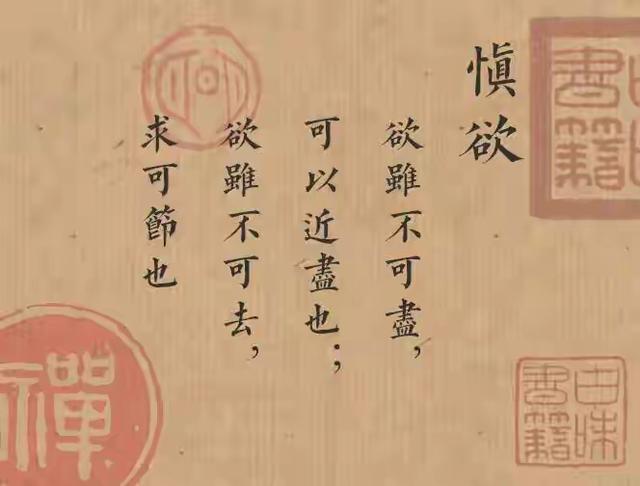 慎欲
欲雖不可盡，
可以近盡也；
欲雖不可去，
求可節也
書籍
禪
書籍